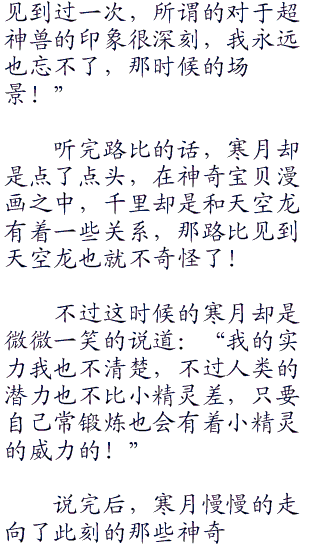 见到过一次，所谓的对于超
神兽的印象很深刻，我永远
也忘不了，那时候的场
景！”
听完路比的话，寒月却
是点了点头，在神奇宝贝漫
画之中，千里却是和天空龙
有着一些关系，那路比见到
天空龙也就不奇怪了！
不过这时候的寒月却是
微微一笑的说道：“我的实
力我也不清楚，不过人类的
潜力也不比小精灵差，只要
自己常锻炼也会有着小精灵
的威力的！”
说完后，寒月慢慢的走
向了此刻的那些神奇